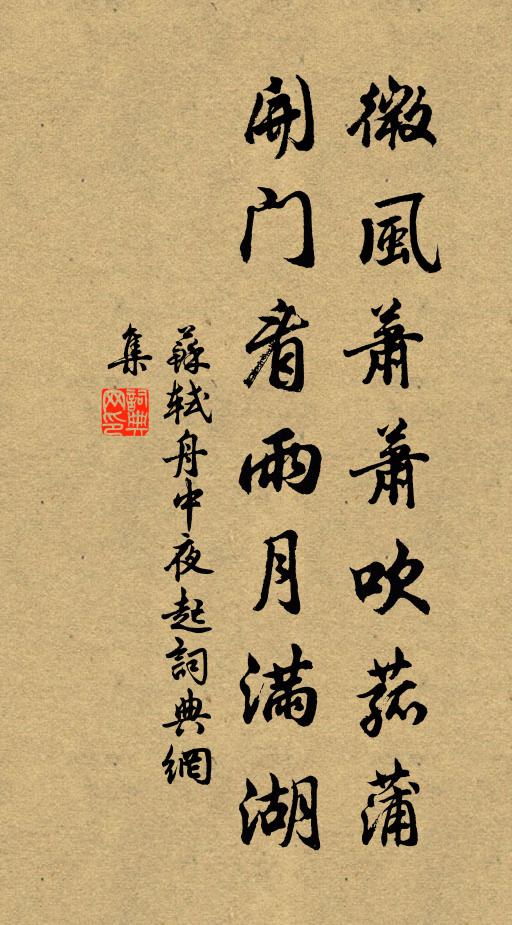 微風蕭蕭吹菰蒲
開門看雨月滿湖
蘇軾舟中夜起詞典網
集
詞典網印